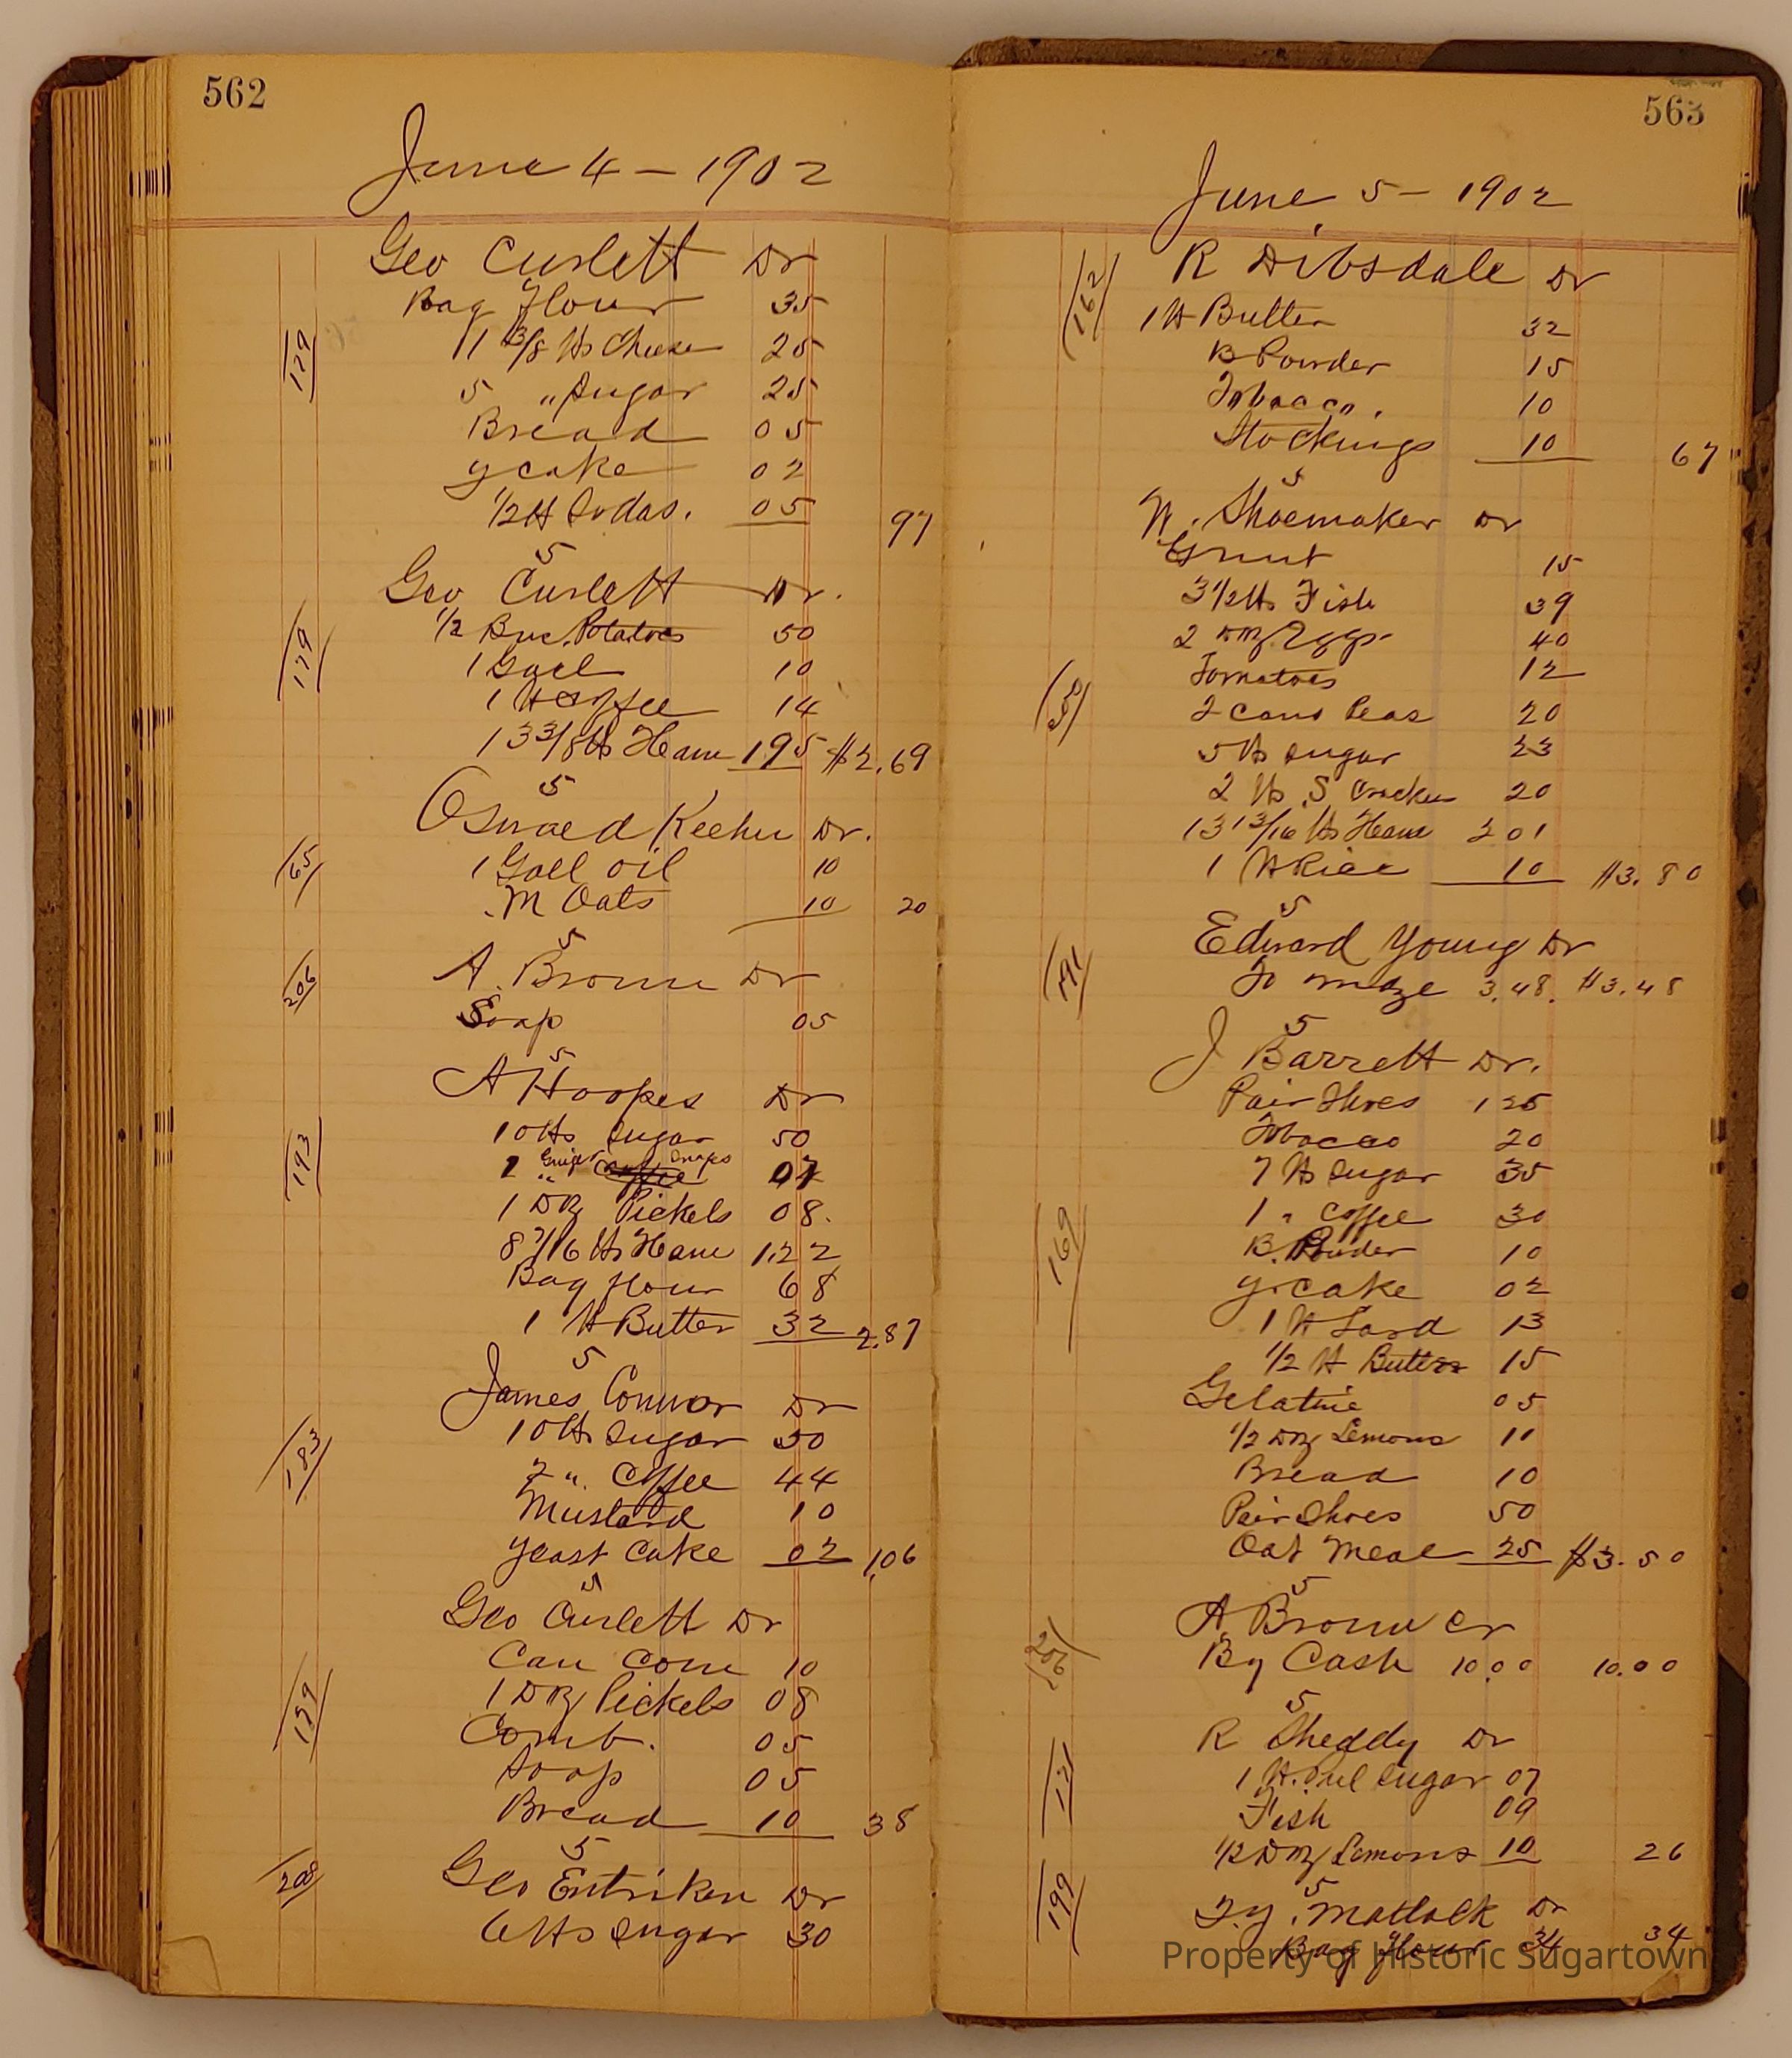 562
June 4 - 1902
Geo Curlett Dr
Bag flour 35
1 3/8 lbs Cheese 25
5 " Sugar 25
Bread 05
y cake 02
1/2 lb Sodas. 05 97
179
5
Geo Curlett Dr.
1/2 Bus. Potatoes 50
1 Gall 10
1 lb Coffee 14
13 3/8 lbs Ham 195 $2.69
179
5
Dr.
1 Gall oil 10
M Oats 10 20
65
5
A. Brown Dr
Soap 05
206
5
A Hoopes Dr
10 lbs Sugar 50
1 " Ginger Snaps 07
1 Dz Pickels 08.
8 7/16 lbs Ham 1.22
Bag flour 68
1 lb Butter 32 2.87
193
5
James Connor Dr
10 lbs Sugar 50
2 " Coffee 44
Mustard 10
yeast Cake 02 1.06
183
5
Geo Curlett Dr
Can Corn 10
1 Dz Pickels 08
Comb. 05
Soap 05
Bread 10 38
179
5
Geo Entriken Dr
6 lbs Sugar 30
208
563
June 5 - 1902
R Dibsdale Dr
1 lb Butter 32
B Powder 15
Tobacco. 10
Stockings 10 67
162
5
W. Shoemaker Dr
G nut 15
3 1/2 lbs Fish 39
2 Dz Eggs 40
Tomatoes 12
2 cans Peas 20
5 lb Sugar 23
2 lbs S Crackers 20
13 13/16 lbs Ham 201
1 lb Rice 10 $3.80
200
5
Edward Young Dr
To mdze 3.48. $3.48
191
5
J Barrett Dr.
Pair Shoes 125
Tobacco 20
7 lb Sugar 35
1 " Coffee 30
B. Powder 10
y. cake 02
1 lb Lard 13
1/2 lb Butter 15
Gelatine 05
1/2 Dz Lemons 10
Bread 10
Pair Shoes 50
Oat Meal 25 $3.50
169
5
A Brown Cr
By Cash 10.00 10.00
206
5
R Sheddy Dr
1 lb. Pul Sugar 07
Fish 09
1/2 Dz Lemons 10 26
121
5
Matlack Dr
Bag flour 34 34
199
Property of Historic Sugartown